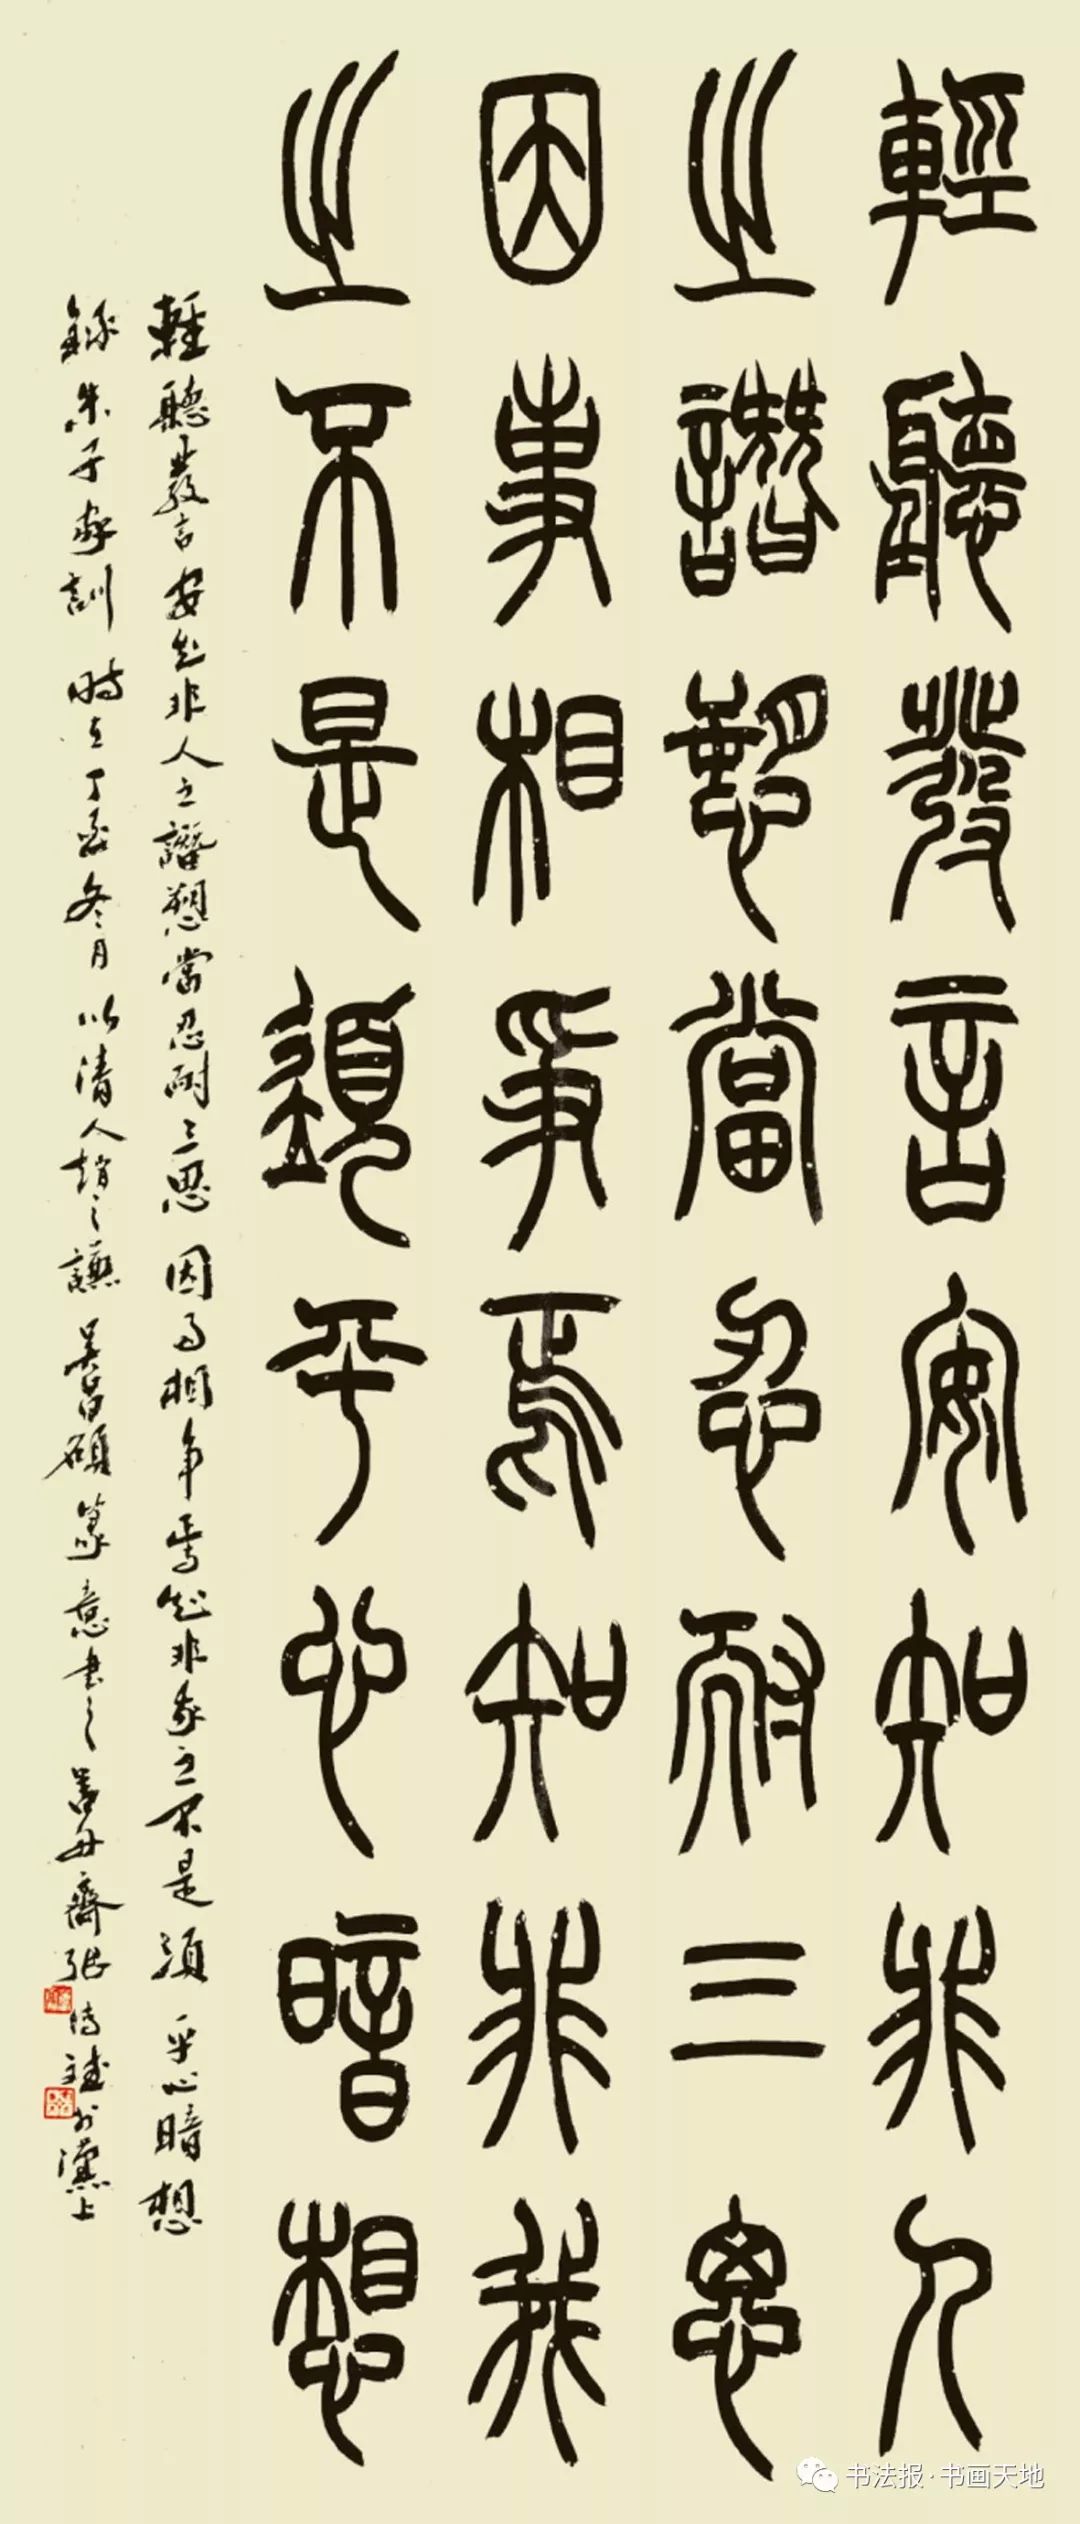 輕聽發言安知非人
之譖愬當忍耐三思
因事相爭焉知非我
之不是須平心暗想
輕聽發言安知非人之譖愬當忍耐三思因事相爭焉知非我之不是須平心暗想
錄朱子家訓時在丁酉冬月以清人趙之謙吳昌碩篆意書之善丹齋張
書法报·书画天地